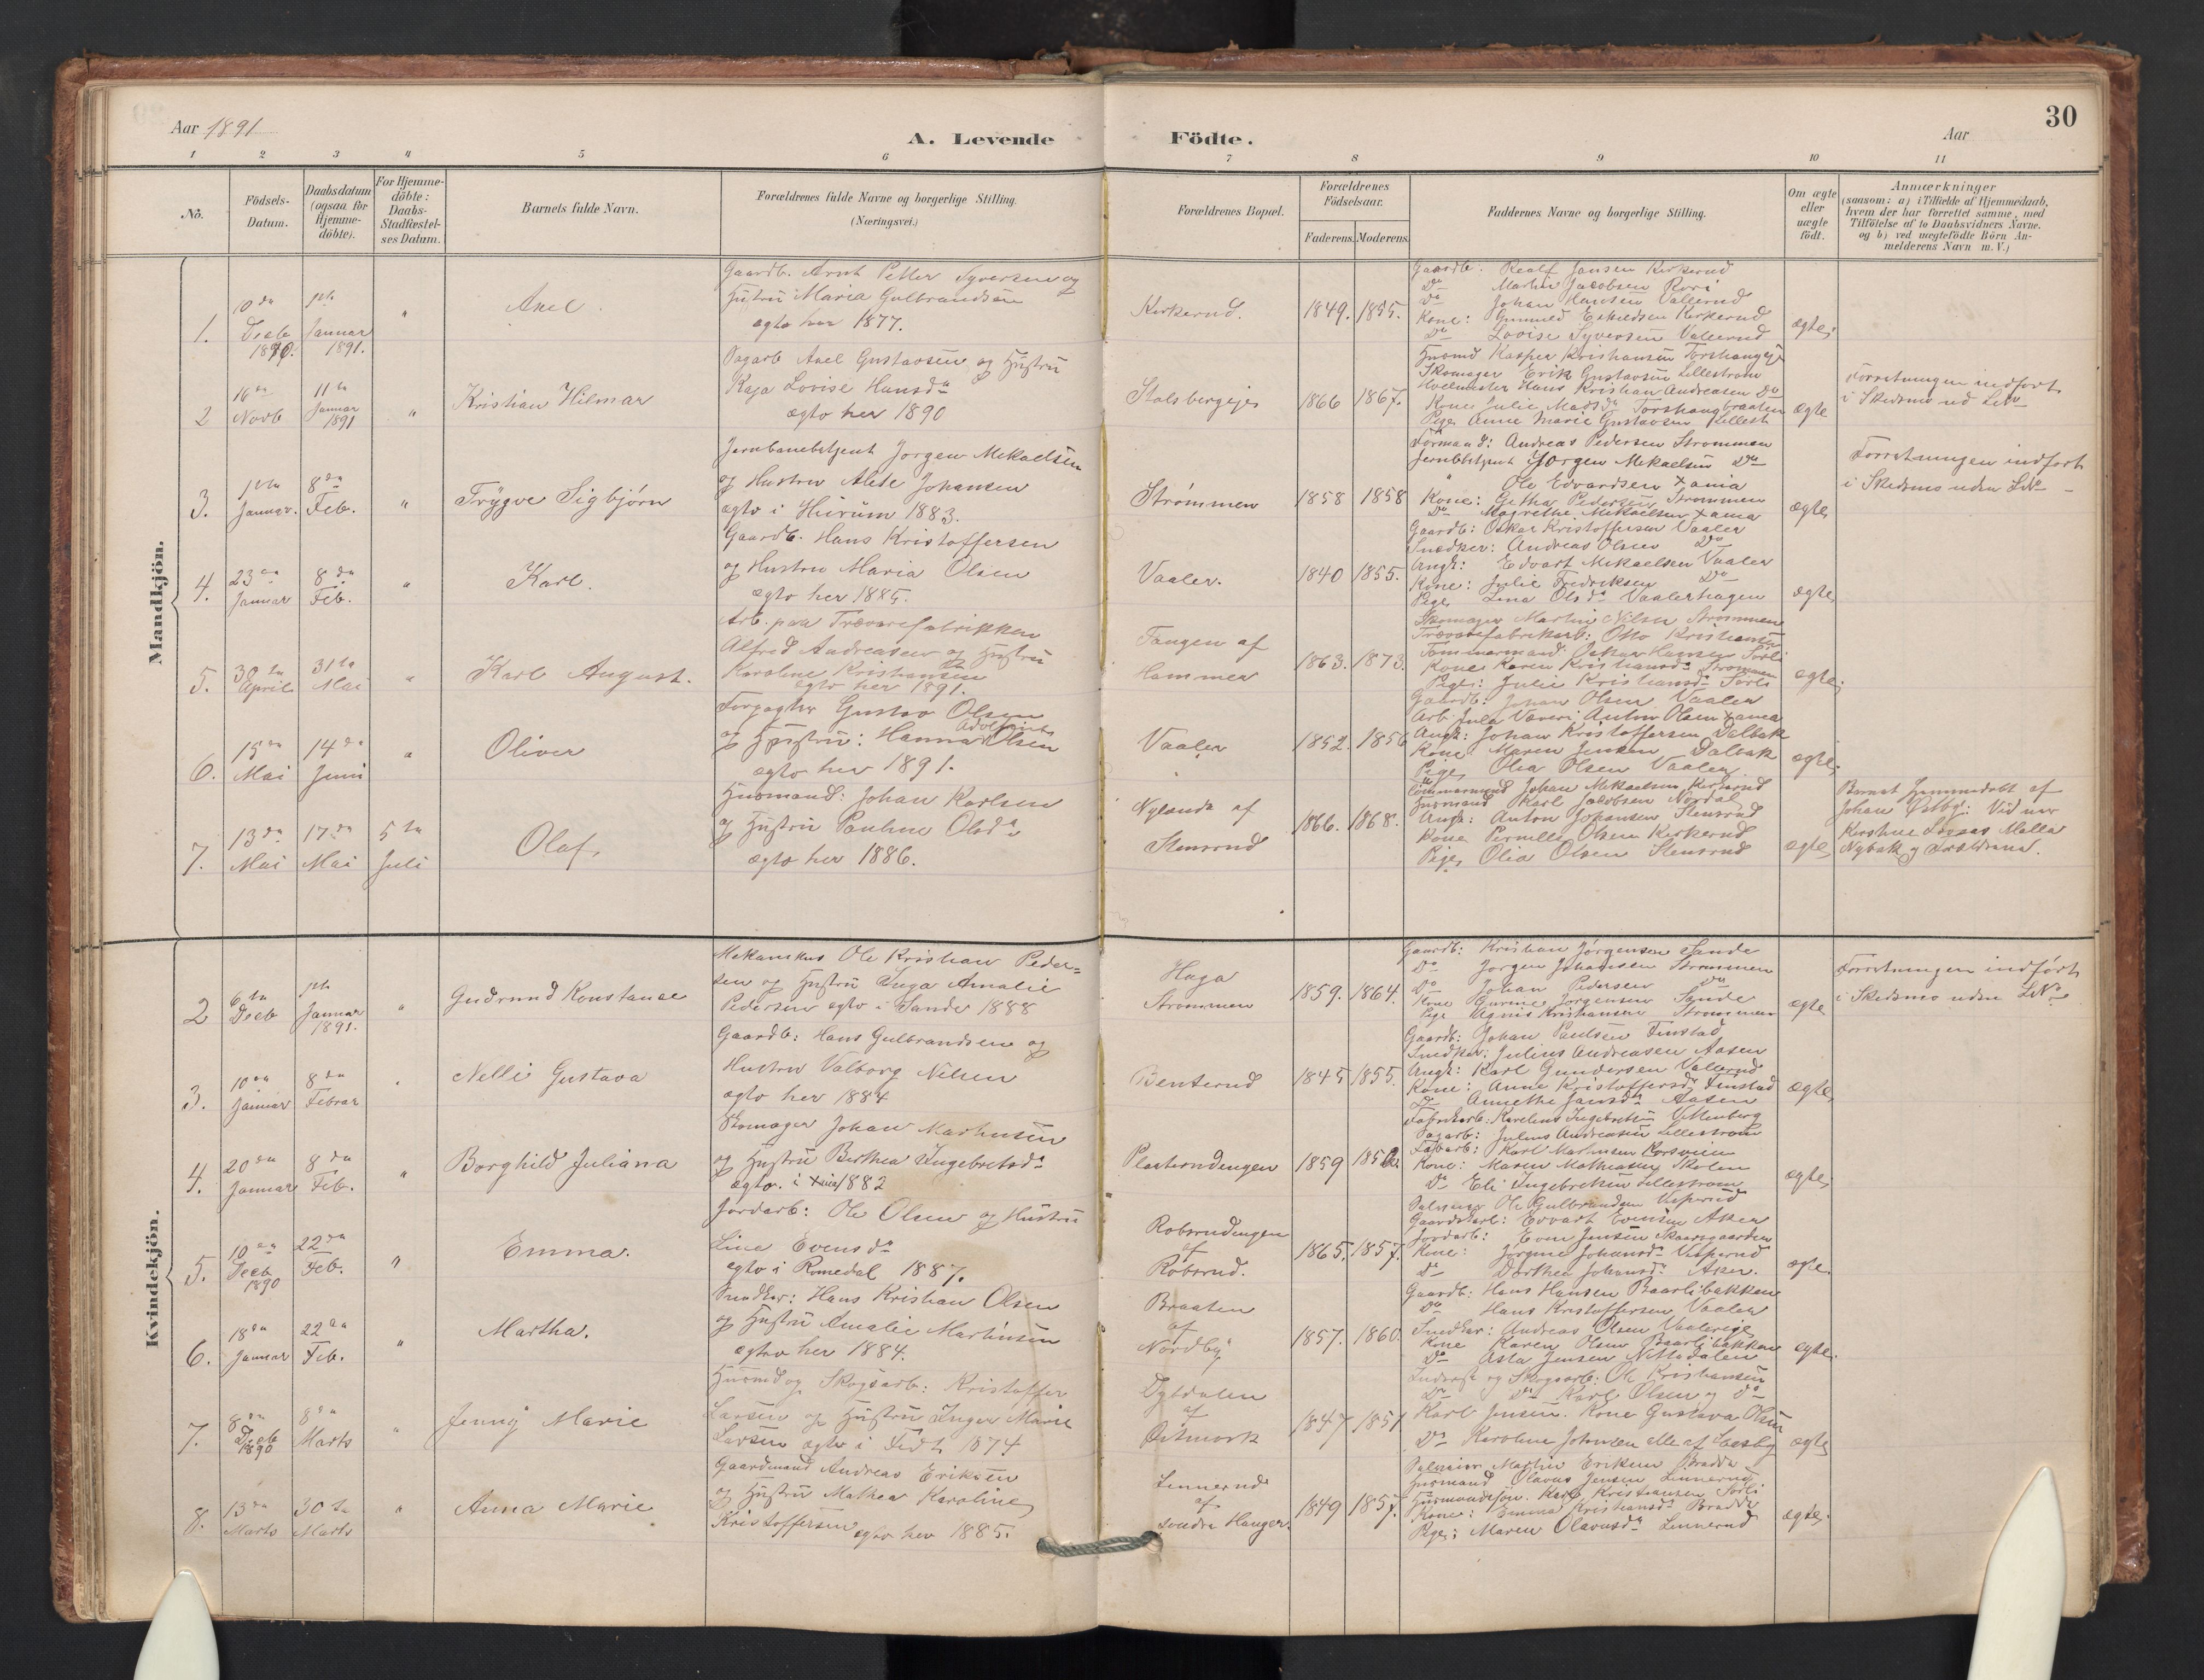 Aar 1891
A. Levende Födte.
Aar
30
1 2 3 4 5 6 7 8 9 10 11
No.
Födsels-Datum.
Daabsdatum (ogsaa for Hjemme-döbte).
For Hjemme-döbte: Daabs-Stadfæstel-ses Datum.
Barnets fulde Navn.
Forældrenes fulde Navne og borgerlige Stilling.
(Næringsvei.)
Forældrenes Bopæl.
Forældrenes Födselsaar.
Faderens. Moderens.
Faddernes Navne og borgerlige Stilling.
Om ægte eller uægte födt.
Anmærkninger
(saasom: a) i Tilfælde af Hjemmedaab,
hvem der har forrettet samme, med
Tilföielse af to Daabsvidners Navne.
og b) ved uægtefödte Börn An-
melderens Navn m. V.)
Mandkjön.
1.
10de Decb 1890.
1ste Januar 1891.
"
Axel.
Gaardb. Arnt Petter Syversen og
Hustru Maria Gulbrandsen
ægtv her 1877.
Kirkerud.
1849. 1855.
Gaardb: Realf Jansen Kirkerud
Do Martin Jacobsen Rori
Do Johan Hansen Vallerud
Kone: Gunnild Eskildsen Kirkerud
Do Lovise Syversen Vallerud
ægte
2
16de Novb
11te Januar 1891
"
Kristian Hilmar
Sagarb Axel Gustavsen og Hustru
Kaja Lovise Hansdr
ægtv her 1890
Stalsbergeje
1866 1867.
Husmd Kasper Kristiansen Torshaugeje
Skomager Erik Gustavsen Lillestrøm
Hans Kristian Andreasen Do
Kone Julie Madsdr Torshaugbraaten
Pige Anne Marie Gustavsen Lillestr
ægte
Forretningen indført
i Skedsmo ud LNo
3.
1ste Januar.
8de Feb.
"
Trygve Sigbjørn
Jernbanebetjent Jørgen Mekaelsen
og Hustru Alete Johansen
ægtv i Hurum 1883.
Strømmen
1858 1858
Formand: Andreas Pedersen Strømmen
Jernbbetjent Jørgen Mekaelsen Do
" Ole Edvardsen Xania
Kone: Gethea Pedersen Strømmen
Do Magrethe Mekaelsen Xania
ægte
Forretningen indført
i Skedsmo uden LNo
4.
23de Januar
8de Feb.
"
Karl.
Gaardb. Hans Kristoffersen
og Hustru Maria Olsen
ægtv her 1885.
Vaaler.
1840 1855.
Gaardb: Oskar Kristoffersen Vaaler
Snedker: Andreas Olsen Do
Ungk: Edvart Mekaelsen Vaaler
Kone: Julie Fredriksen Do
Pige Lina Olsdr Vaalerhagen
ægte
5.
30te April
31te Mai
"
Karl August.
Arb. paa Trævarefabrikken
Alfred Andreasen og Hustru
Karoline Kristiansen
ægtv her 1891.
Tangen af
Hammer
1863. 1873.
Skomager Martin Nilsen Strømmen
Trævarefabrikarb: Otto Kristiansen
Tømmermand: Oskar Hansen Sørli
Kone Karen Kristiansdr Strømmen
Pige: Julie Kristiansdr Sørli
ægte
6.
15de Mai
14de Juni
"
Oliver
Forpagter Gustav Olsen
og Hustru: Hanna Olsen
ægtv her 1891.
Vaaler
1852. 1856
Gaardb: Johan Olsen Vaaler
Arb Jula Væveri Anton Olsen Xania
Ungk: Johan Kristoffersen Dalbak
Kone Maren Jensen Dalbak
Pige Olea Olsen Vaaler
ægte
7.
13de Mai
17de Mai
5te Juli
Olaf.
Husmand: Johan Karlsen
og Hustru Pauline Olsdr
ægtv her 1886.
Nylænda af
Stensrud
1866. 1868.
Tømmermand Johan Mekaelsen Kirkerud
Husmand Karl Jakobsen Nordal
Ungk: Anton Johansen Stensrud
Kone Pernille Olsen Kirkerud
Pige Olia Olsen Stensrud
ægte
Barnet hjemmedøbt af
Johan Østby: Vidner
Kirstine Malla
Nybak og Forældrene.
Kvindekjön.
2
6te Decb
1ste Januar 1891.
"
Gudrund Konstanse
Mekanikus Ole Kristian Peder=
sen og Hustru Inga Amalie
Pedersen ægtv i Sande 1888
Haga
Strømmen
1859. 1864.
Gaardb: Kristian Jørgensen Sande
Do Jørgen Johansen Strømmen
Do Johan Pedersen Do
Kone Gurine Jørgensen Sande
Pige Agnis Kristiansen Strømmen
ægte
Forretningen indført
i Skedsmo uden LNo
3.
10de Januar
8de Februar
"
Nelli Gustava
Gaardb: Hans Gulbrandsen og
Hustru Valborg Nilsen
ægtv her 1884
Benterud
1845 1855.
Gaardb: Johan Paulsen Finstad
Snedker: Julius Andreasen Aasen
Ungk: Karl Gundersen Vallerud
Kone: Anne Kristoffersdr Finstad
Do Annethe Jansdr Aasen
ægte
4.
20de Januar
8de Feb.
"
Borghild Juliana
Skomager Johan Martinsen
og Hustru Berthea Ingebretsdr
ægtv. i Xania 1882
Plasterudengen
1859
Fabrikarb: Karelius Ingebretsen Vittenberg
Sagarb: Julius Andreasen Lillestrøm
Fabarb: Karl Martinsen Korsveien
Kone: Maren Mathiasen Skolen
Do Eli Ingebretsen Lillestrøm
ægte
5.
10de Decb 1890
22de Feb.
"
Emma.
Jordarb: Ole Olsen og Hustru
Lina Evensdr
ægtv i Romedal 1887.
Robsrudengen
af
Robsrud.
1865. 1857.
Ole Gulbrandsen Visperud
Gaardskarl: Edvart Evensen Aker
Jordarb: Even Jensen Skaarsgaarden
Kone: Jørgine Johansdr Visperud
Do Dorthea Johansdr Aker.
ægte.
6.
18de Januar
22de Feb.
"
Martha.
Snedker: Hans Kristian Olsen
og Hustru Amalie Martinsen
ægtev her 1884.
Braaten
af
Nordby
1857. 1860.
Gaardb: Hans Hansen Baarlibakken
Do Hans Kristoffersen Vaaler
Snedker: Andreas Olsen Vaalereje
Kone Karen Olsen Baarlibakken
Do Asta Jensen Nittedalen
ægte.
7.
8de Decb 1890
8de Marts
"
Jenny Marie
Husmd og Skogsarb: Kristoffer
Larsen og Hustru Inger Marie
Larsen ægtv i Fedt 1874
Dybdalen
af
Østmork
1847 1851
Inderst og Skogsarb: Ole Kristiansen
Do Do Karl Olsen og do
Karl Jensen. Kone Gustava Olsen
Do Karoline Johnsen alle af Losby
ægte
8.
13de Marts
30te Marts
"
Anna Marie
Gaardmand Andreas Eriksen
og Hustru Mathea Karoline
Kristoffersen ægtv her 1885.
Linnerud
af
søndre Hauger.
1849 1857.
Martin Eriksen Bradda
Husmand Olavus Jensen Linnerud
Husmandssøn. Karl Kristiansen Sørli
Kone: Emma Kristiansdr Bradda
Pige: Maren Olavusdr Linnerud
ægte.